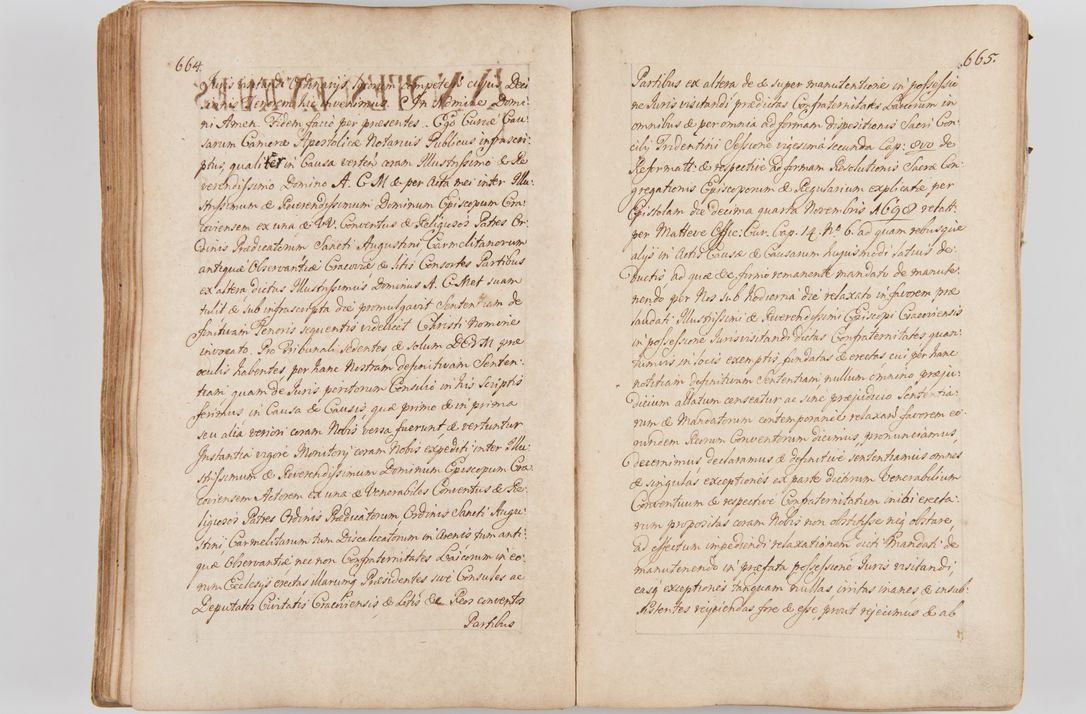 664.
Juris visitandi Ordinarijs, locorum competens cujus Deci
sionis tenorem hic invenimus. In Nomine Domi:
ni Amen. Fidem facio per præsentes. Ego Curiæ Cau:
sarum Cameræ Apostolicæ Notarius Publicus infrascri:
ptus, qualiter in Causa verteñ coram Illustrissimo & Re
verendissimo Domino A. C. M & per Acta mei inter Illu:
strissimum & Reverendissimum Dominum Episcopum Cra:
coviensem ex una & VV. Conventus & Religiosos Patres Or:
dinis Prædicatorum Sancti Augustini Carmelitanorum
antiquæ Observantiæ Cracoviæ & litis Consortes Partibus
ex altera dictus Illustrissimus Dominus A. C. Met suam
tulit & sub infrascripta die promulgavit Sententiam de
finitivam Tenoris sequentis videlicet Christi Nomine
invocato. Pro Tribunali sedentes & solum DEUM præ
oculis habentes per hanc Nostram definitivam Senten:
tiam quam de Juris peritorum Consilio in his Scriptis
ferimus in Causa & Causis quæ primo & in prima
seu alia veriori coram Nobis versa fuerunt & vertuntur
Instantia vigore Monitorij coram Nobis expediti inter Illu:
strissimum & Reverendissimum Dominum Episcopum Cra:
coviensem Actorem ex una & Venerabiles Conventus & Re:
ligiosos Patres Ordinis Prædicatorum Ordinis Sancti Augu:
stini Carmelitarum tum Discalceatorum tum anti:
quæ Observantiæ nec non Confraternitates Laicorum in eo:
rum Ecclesijs erectas illarumq Præsidentes sive Consules ac
Deputatos Civitatis Cracoviensis & Litis &c Reos conventos
Partibus
665.
Partibus ex altera de & super manutentione in possessio
ne Juris visitandi prædictas Confraternitates Laicorum in
omnibus & per omnia ad formam dispositionis Sacri Con
cilij Tridentini Sessione vigesima secunda Cap: 8vo de
Reformatt: & respective ad formam Resolutionis Sacræ Con:
gregationis Episcoporum & Regularium explicatæ per
Epistolam die decima quarta Novembris 1698 relatt:
per Matteve Offic: Cur. Cap. 14. No 6. ad quam rebusque
alijs in Actis Causæ & Causarum hujusmodi latius de:
ductis ad quæ & firmo remanente mandato de manute:
nendo per Nos sub hodierna die relaxato in favorem præ
laudati Illustrissimi & Reverendissimi Episcopi Cracoviensis
in possessione Juris visitandi dictas Confraternitates quan:
tumvis in locis exemptis fundatas & erectas cui per hanc
nostram definitivam Sententiam nullum omnino præju:
dicium allatum censeatur ac sine præjudicio Sententia:
rum & Mandatorum contemporanee relaxañ favorem eo:
rundem Reorum Conventorum dicimus, pronunciamus,
decernimus declaramus & definitive sententiamus omnes
& singulas exceptiones ex parte dictorum Venerabilium
Conventuum & respective Confraternitatum inibi erecta:
rum propositas coram Nobis non obstitisse neq obstare,
ad effectum impediendi relaxationem dicti Mandati de
manutenendo in præfata possessione Juris visitandi,
easq exceptiones tanquam nullas irritas inanes & insub:
sistentes rejiciendas fore & esse, prout rejecimus & ab